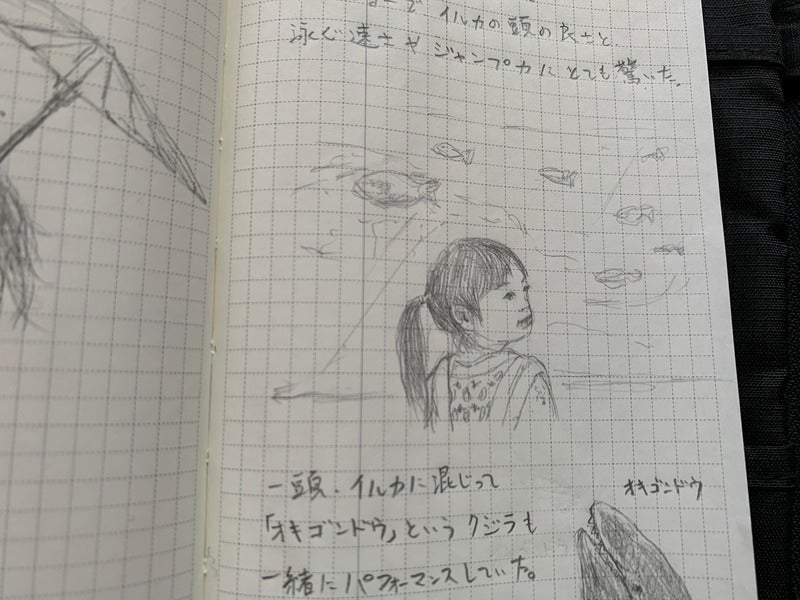 イルカの頭の良さと、
泳ぐ速さやジャンプ力にとても驚いた。
一頭、イルカに混じって
オキゴンドウ
「オキゴンドウ」というクジラも
一緒にパフォーマンスしていた。